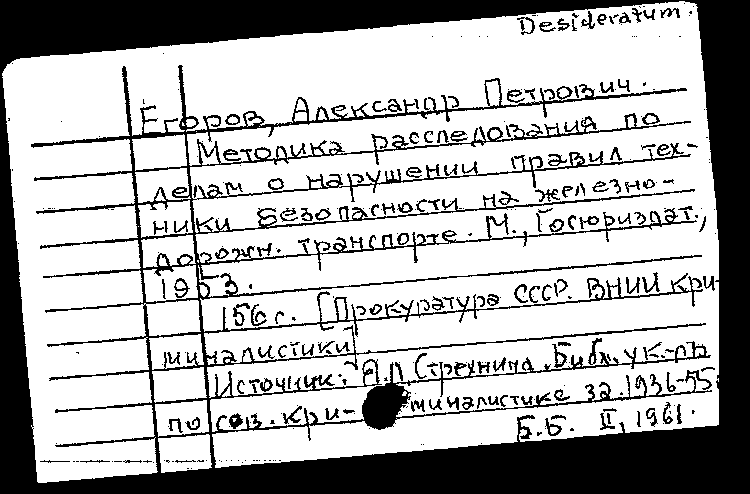 Desideratum.
Егоров, Александр Петрович.
Методика расследования по
делам о нарушении правил тех-
ники безопасности на железно-
дорожн. транспорте. М., Госюриздат,
1953.
156 с. [Прокуратура СССР. ВНИИ кри-
миналистики]
Источник: А.П. Стрехнина. Библ. ук.-ль
по сов. кри- миналистике за 1936-55
Б.Б. II, 1961.